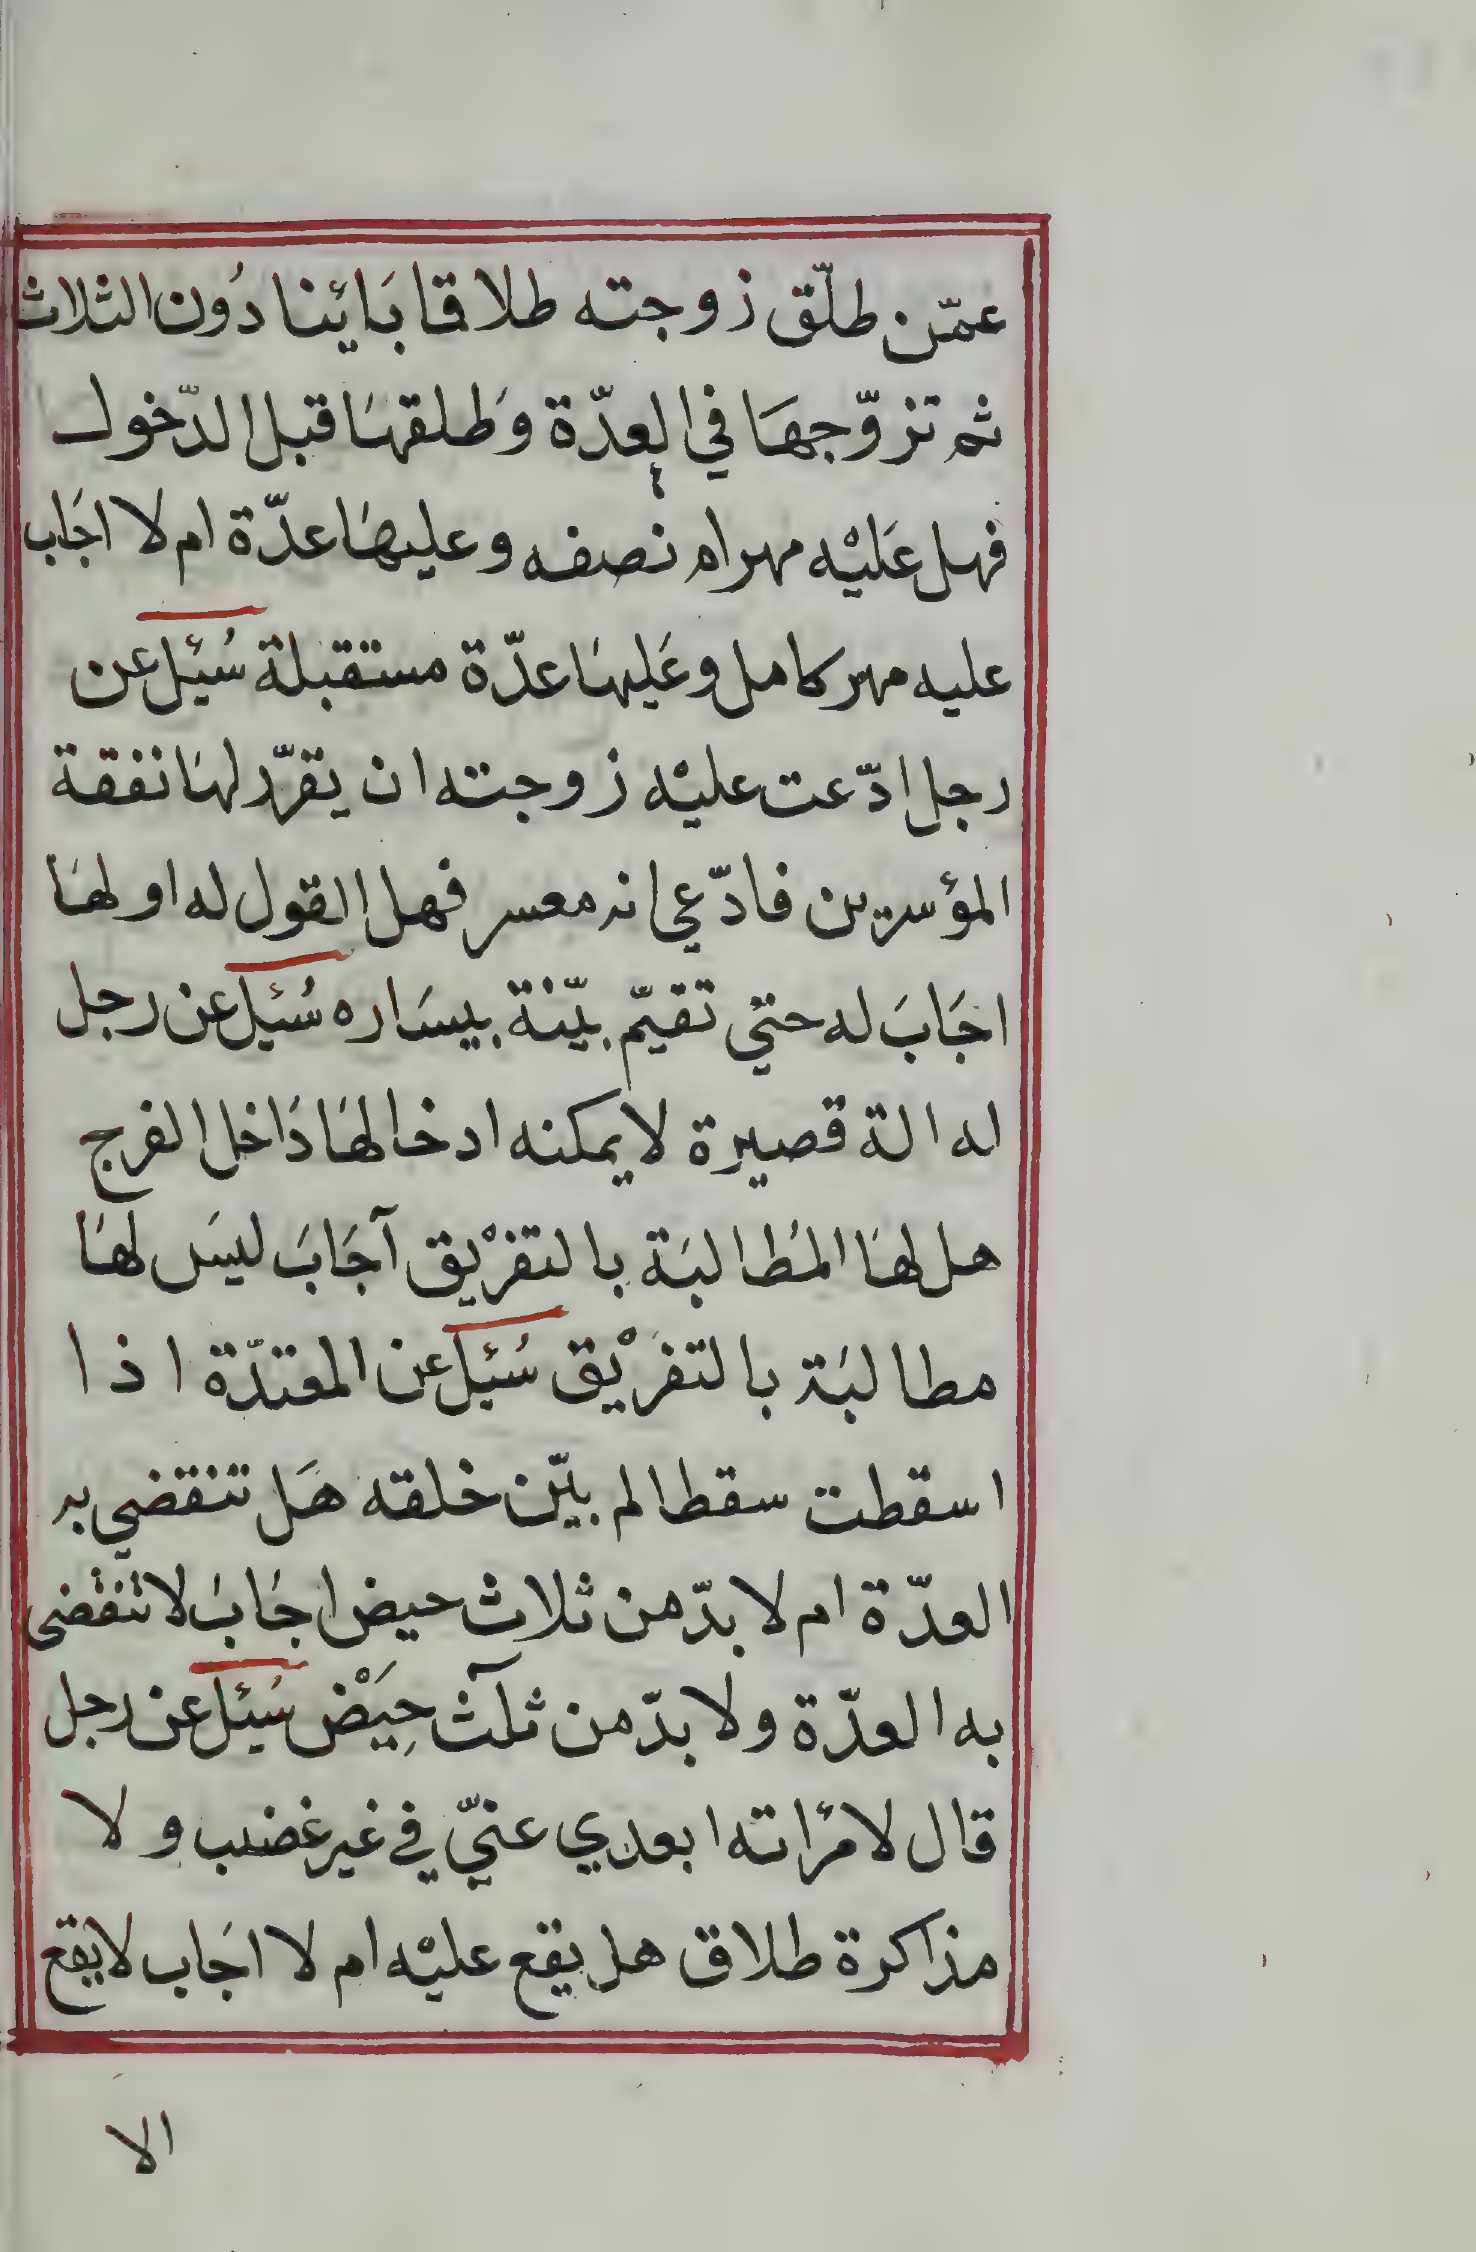 عمّن طلّق زوجته طلاقا بَائنا دُون الثلاث
ثم تزوّجهَا في العدّة وَطلقهَا قبل الدّخول
فهل عَليْه مهر ام نصفه وعليهَا عدّة ام لا اجَاب
عليه مهر كامل وعَليهَا عدّة مستقبلة سُئِل عن
رجل ادّعت عليْه زوجته ان يقرّر لهَا نفقة
المؤسرين فادّعي انه معسر فهل القول له او لهَا
اجَابَ له حتي تقيمّ بيّنة بيسَاره سُئِل عن رجل
له الة قصيرة لا يمكنه ادخالهَا دَاخل الفرج
هل لهَا المُطالبَة بالتفرْيق آجَابَ ليسَ لهَا
مطالبَة بالتفرْيق سُئِل عن المعتدّة اذا
اسقطت سقطا لم بيّن خلقه هَل تنقضي به
العدّة ام لا بدّ من ثلاث حيض اجَابَ لا تنقضى
به العدّة ولا بدّ من ثلآث حِيَضْ سُئِل عن رجل
قال لامْرأته ابعدي عنيّ في غير غضب ولا
مذاكرة طلاق هل يقع عليْه ام لا اجَاب لا يقع
الا